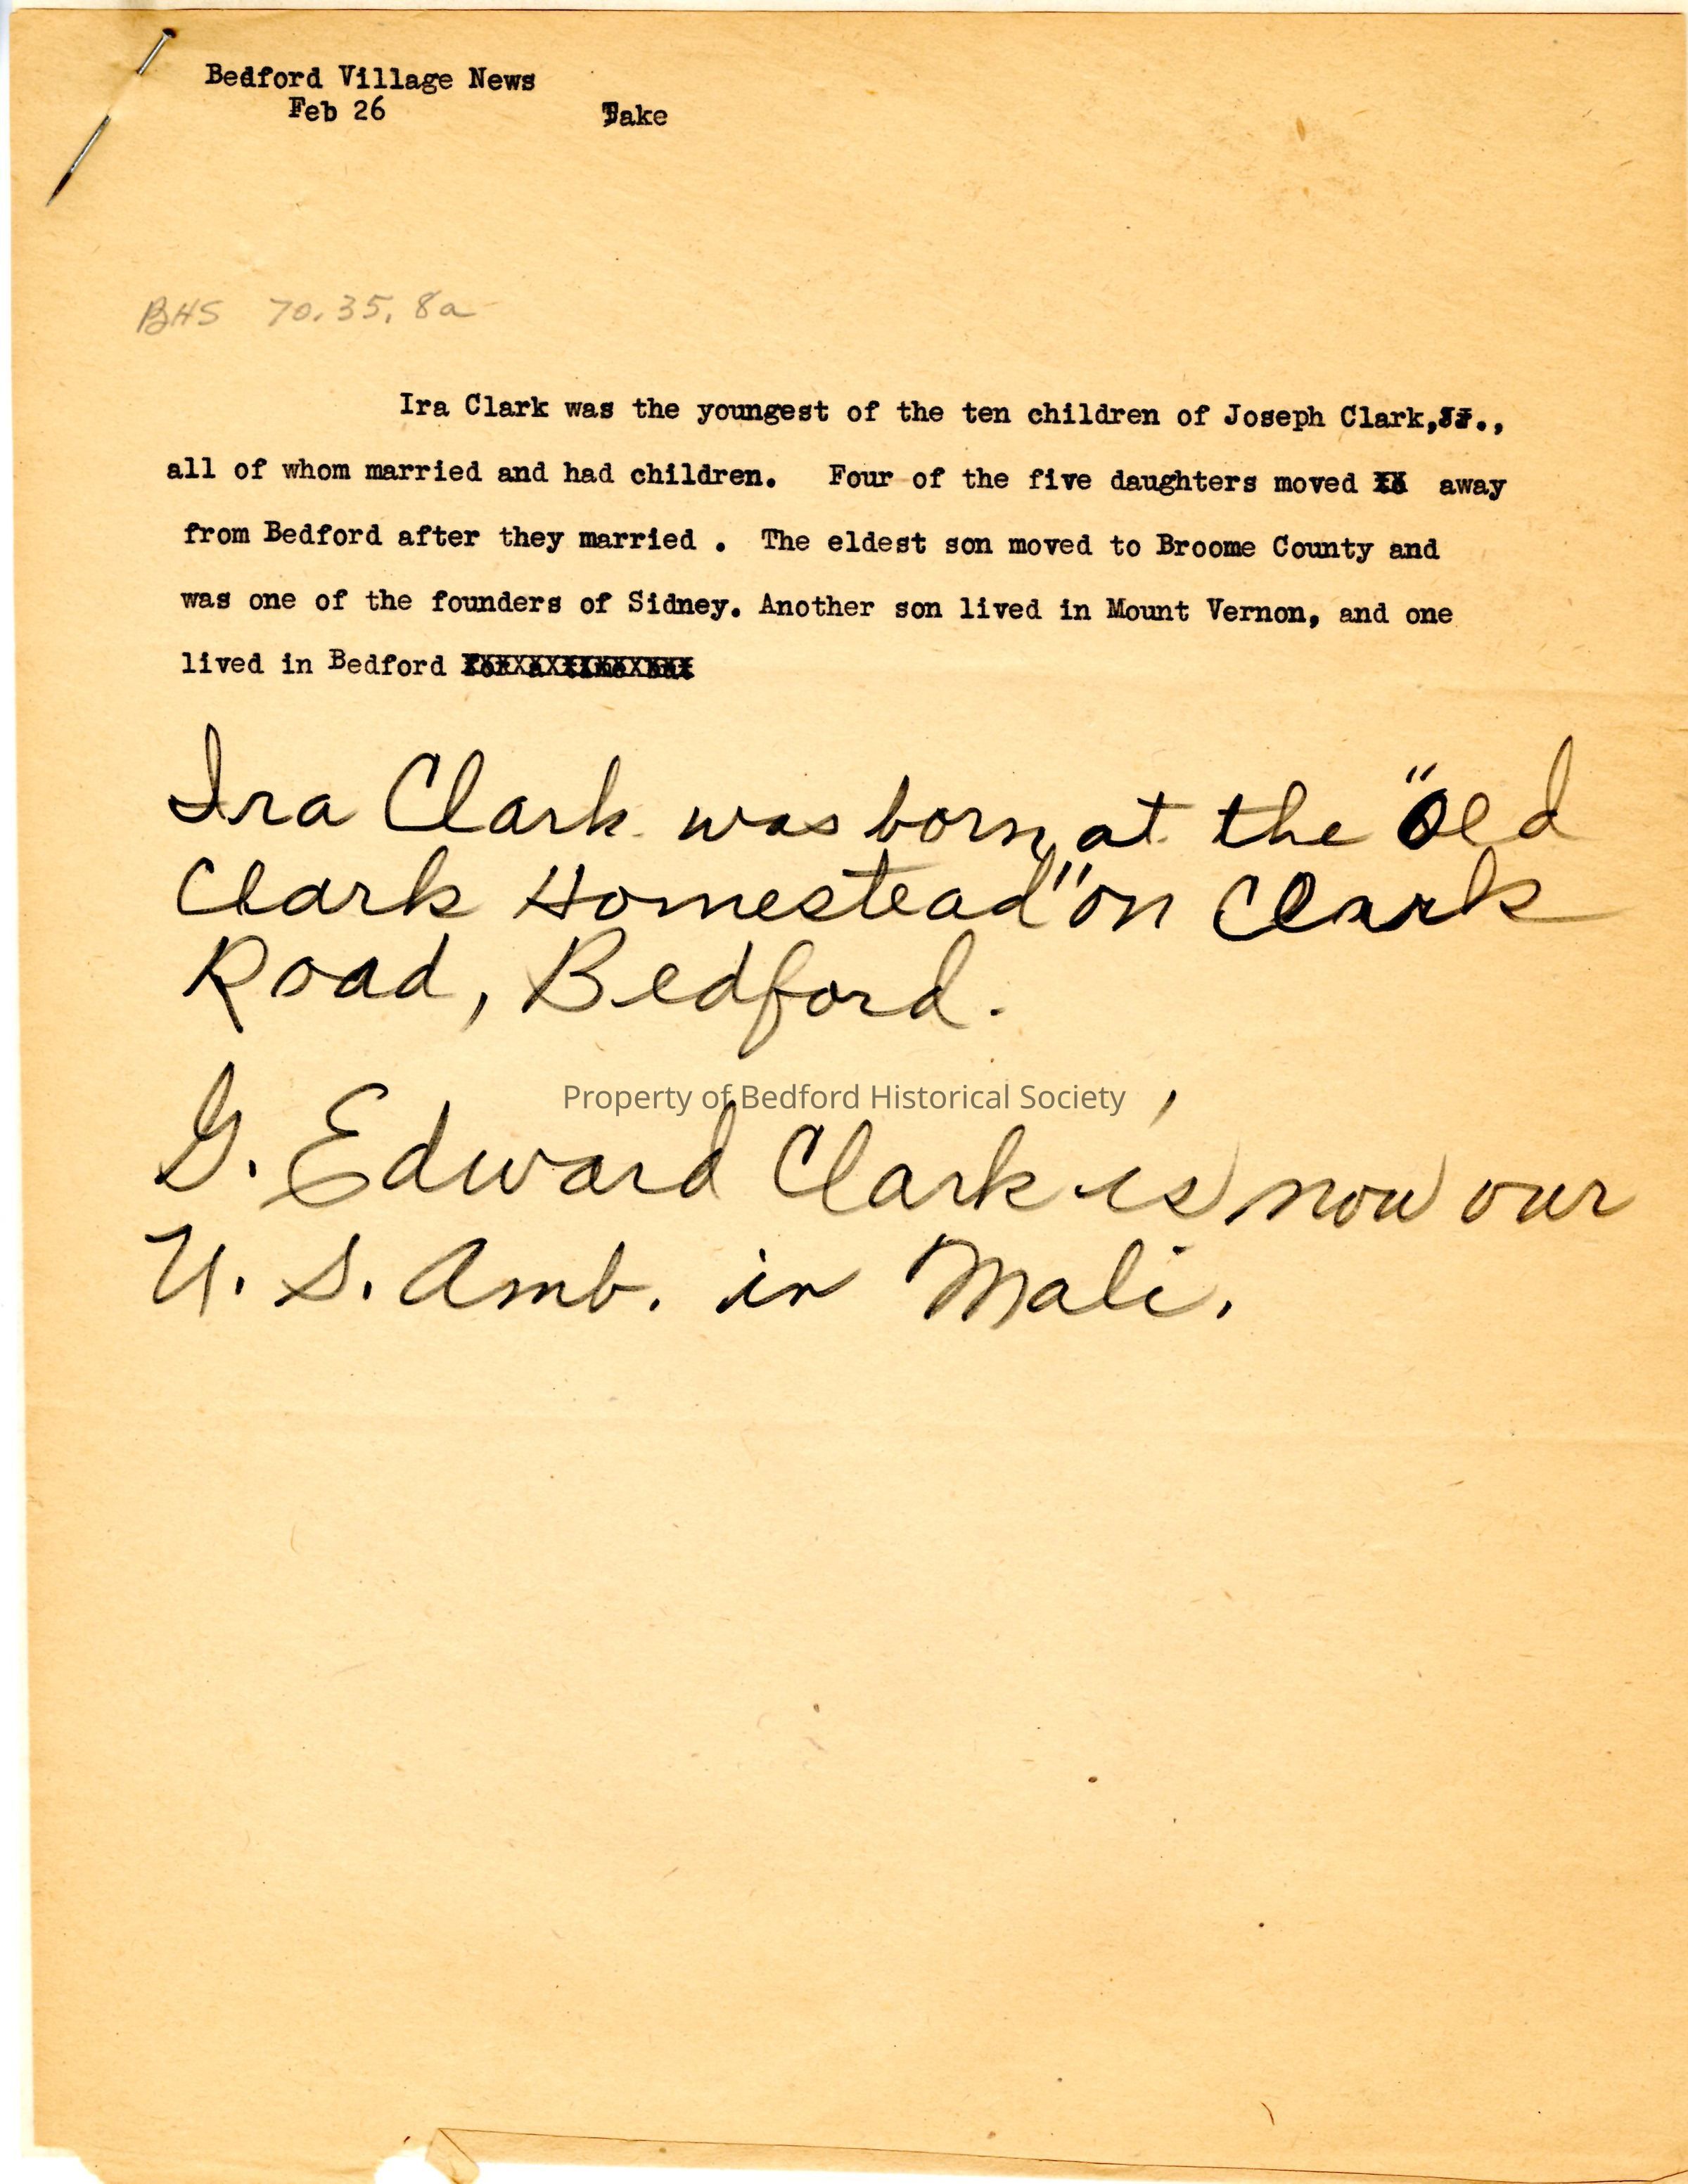 Bedford Village News
Feb 26 Take
BHS 70.35.8a
Ira Clark was the youngest of the ten children of Joseph Clark, .,
all of whom married and had children. Four of the five daughters moved away
from Bedford after they married . The eldest son moved to Broome County and
was one of the founders of Sidney. Another son lived in Mount Vernon, and one
lived in Bedford
Ira Clark was born at the "Old
Clark Homestead" on Clark
Road, Bedford.
Property of Bedford Historical Society
G. Edward Clark is now our
U. S. Amb. in Mali.